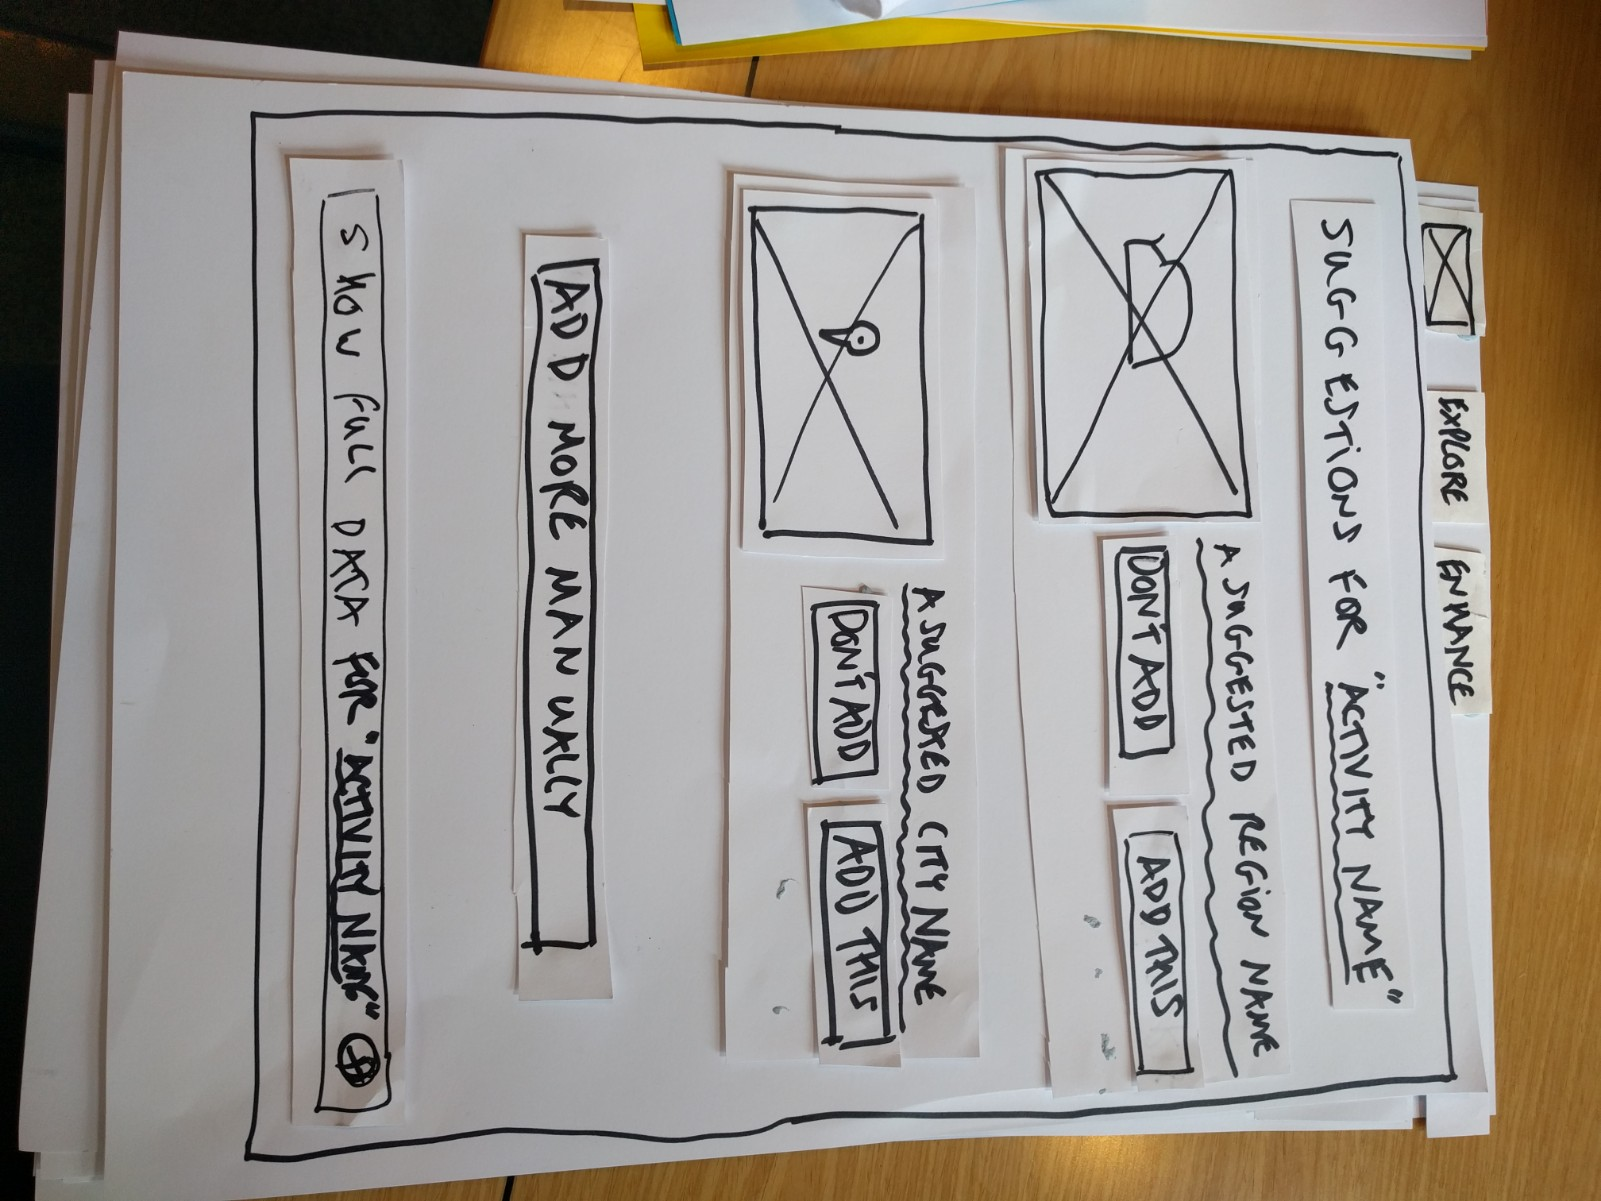 EXPLORE
ENHANCE
SUGGESTIONS FOR "ACTIVITY NAME"
A SUGGESTED REGION NAME
DON'T ADD
ADD THIS
A SUGGESTED CITY NAME
DON'T ADD
ADD THIS
ADD MORE MANUALLY
SHOW FULL DATA FOR "ACTIVITY NAME"